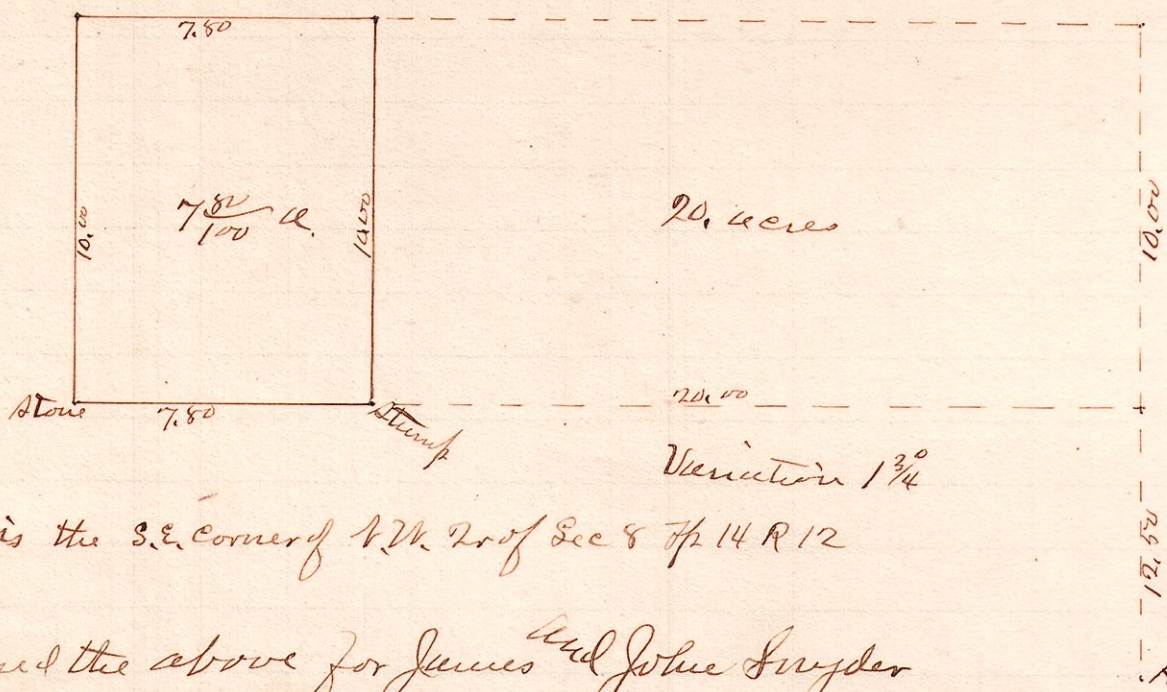 7.80
10.00 7 80/100 a. 10.00 20. acres 10.00
Stone 7.80 Stump 20.00
Variation 1 3/4°
12.50
is the S.E. corner of N.W. Qr of Sec 8 Tp 14 R 12
ed the above for James and John Snyder